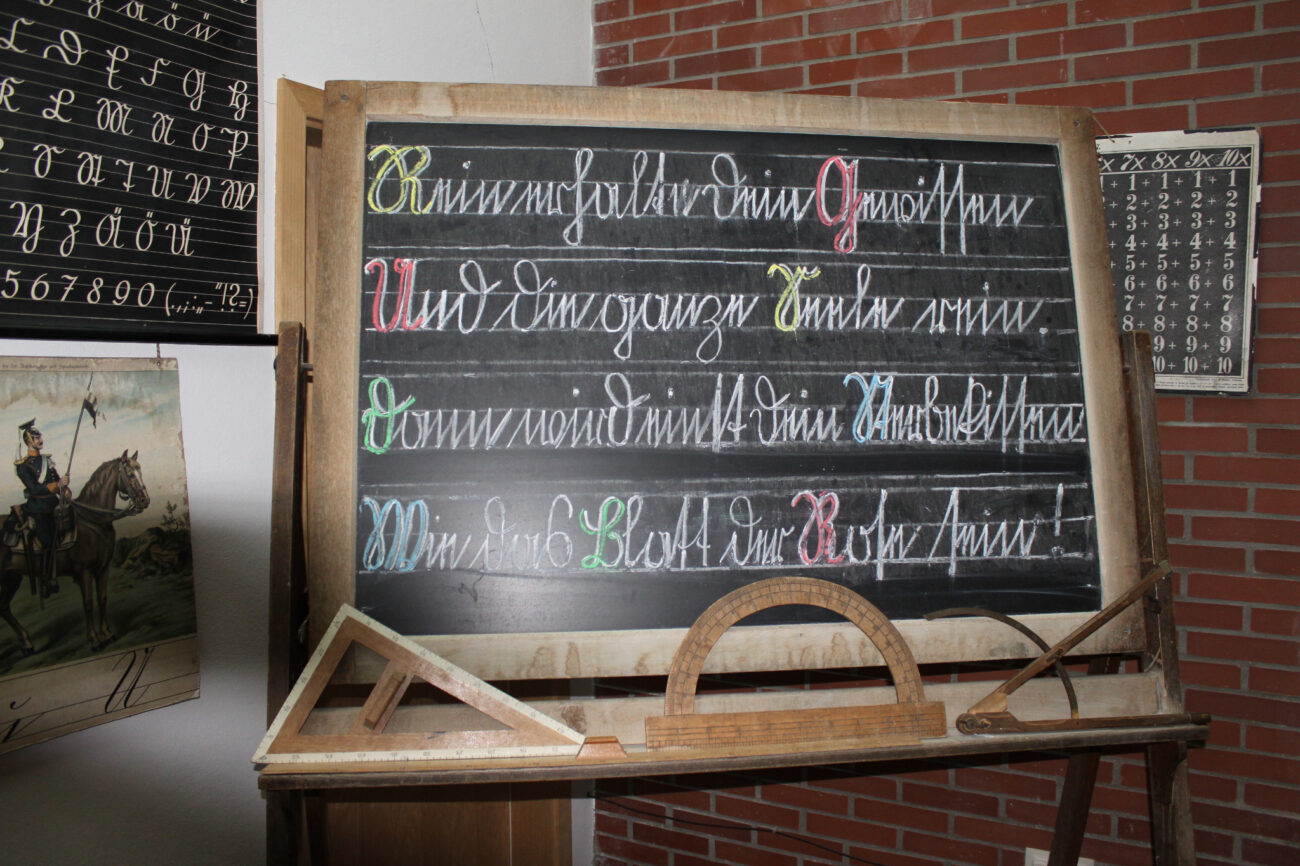 D E F G H
K L M N O P
U V W
Y Z Ä Ö Ü
5 6 7 8 9 0 (.,;:-"!?=)
Rein erhalte dein Gewissen
Und die ganze Seele rein.
Dann wird einst dein Sterbekissen
Wie das Blatt der Rose sein!
7× 8× 9× 10×
+ 1 + 1 + 1 1
+ 2 + 2 + 2 2
3 + 3 + 3 + 3
4 + 4 + 4 + 4
5 + 5 + 5 + 5
6 + 6 + 6 + 6
7 + 7 + 7 + 7
8 + 8 + 8 + 8
9 + 9 + 9
10 + 10 + 10